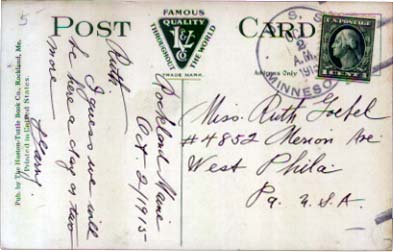 POST CARD
FAMOUS
QUALITY
THROUGHOUT THE WORLD
TRADE MARK
Address Only
S. S.
2
A.M.
1915
MINNESO
U.S. POSTAGE
1 CENT 1
Pub. by The Huston-Tuttle Book Co., Rockland, Me.
Printed in United States.
Rockland Maine
Oct. 2/1915
Ruth
I guess we will
be here a day or two
more
Miss. Ruth Goebel
#4852 Merion Ave
West Phila
Pa. U.S.A.